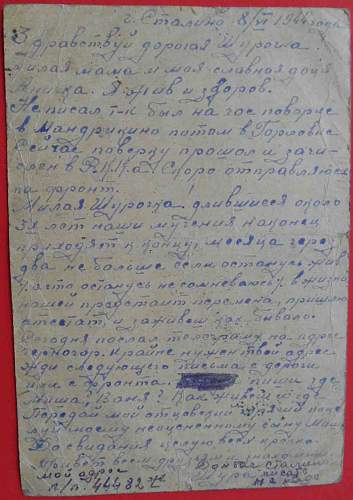 г. Сталино 8/VI 1944 года
Здравствуй дорогая Шурочка.
милая мама и моя славная доця
Я жив и здоров.
Не писал т-к был на гос поверке
в Мандрикино потом в Горловке
Сейчас поверку прошол и зачи-
слен в Р.К.К.А. Скоро отправляюсь
на фронт.
Милая Шурочка! длившиеся около
3х лет наши мучения наконец
приходят к концу, месяца через
два не больше если останусь жив
а что останусь не сомневаюсь в жизни
нашей предстоит перемена, пришлю
аттестат и заживем как бывало.
Сегодня послал телеграмму по адресе
Черногор. Крайне нужен твой адрес
Жди следующего письма с дороги
или с фронта. пиши где
Миша? Ваня? Как живем и где
Передай мой отцовский поце-
луй моему неоцененному сыну
До свидания целую всех крепко.
Привет всем друзьям и знакомым
мой адрес Донбас Сталино
п/п. 44482 Шура писать